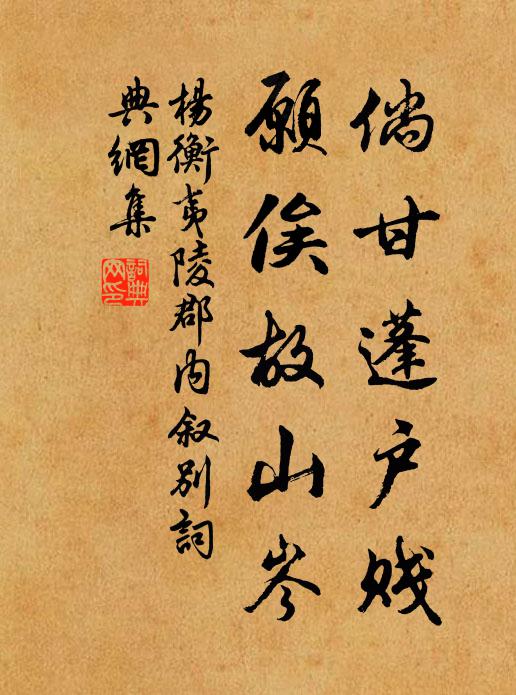 倘甘蓬户贱
願俟故山岑
楊衡夷陵郡内叙别詞
典網集
詞典
网印